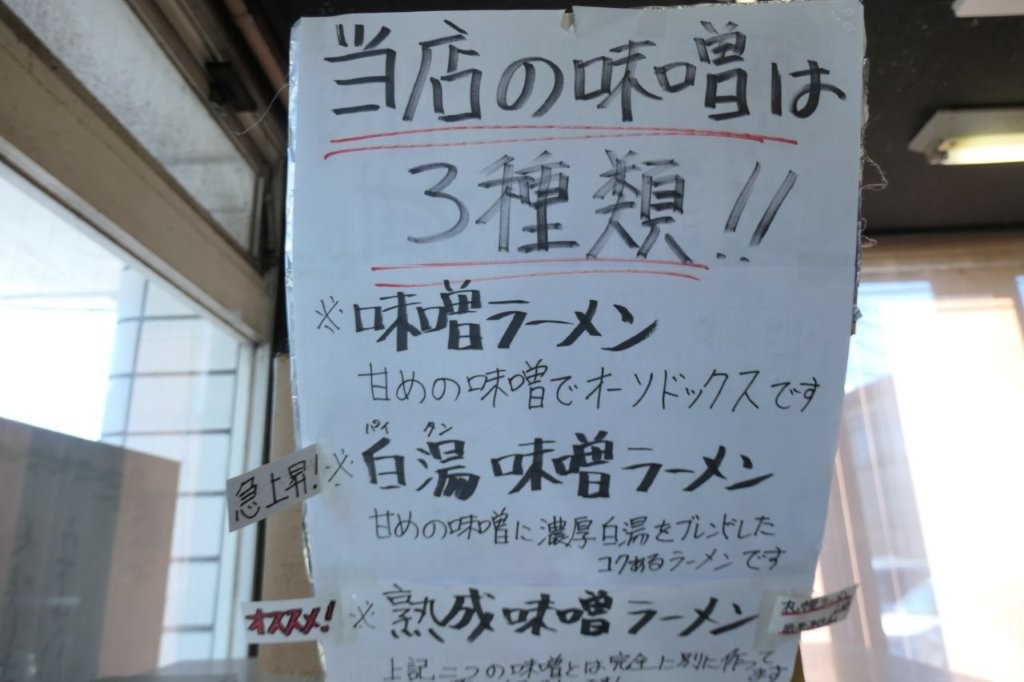 当店の味噌は
3種類!!
※味噌ラーメン
甘めの味噌でオーソドックスです
パイ タン
急上昇!
※白湯味噌ラーメン
甘めの味噌に濃厚白湯をブレンドした
コクあるラーメンです
オススメ!
※熟成味噌ラーメン
上記二つの味噌とは完全に別に作ってます